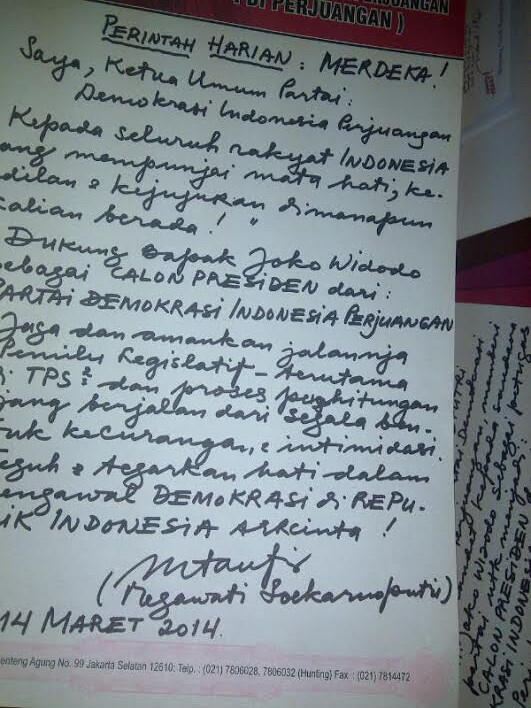 PERJUANGAN
( PDI PERJUANGAN )
PERINTAH HARIAN : MERDEKA !
Saya, Ketua Umum Partai :
Demokrasi Indonesia Perjuangan
Kepada seluruh rakyat INDONESIA
ang mempunjai mata hati, ke-
dilan & kejujuran dimanapun
alian berada ! "
Dukung Bapak Joko Widodo
ebagai CALON PRESIDEN dari :
PARTAI DEMOKRASI INDONESIA PERJUANGAN
Jaga dan amankan jalannja
Pemilu Legislatif - terutama
di TPS² dan proses penghitungan
jang berjalan dari segala ben-
tuk kecurangan, & intimidasi.
Teguh & tegarkan hati dalam
engawal DEMOKRASI di REPU-
IK INDONESIA
!
( Megawati Soekarnoputri )
14 MARET 2014.
enteng Agung No. 99 Jakarta Selatan 12610; Telp. : (021) 7806028, 7806032 (Hunting) Fax : (021) 7814472
Joko Widodo sebagai
CALON PRESIDEN
KRASI INDONESIA